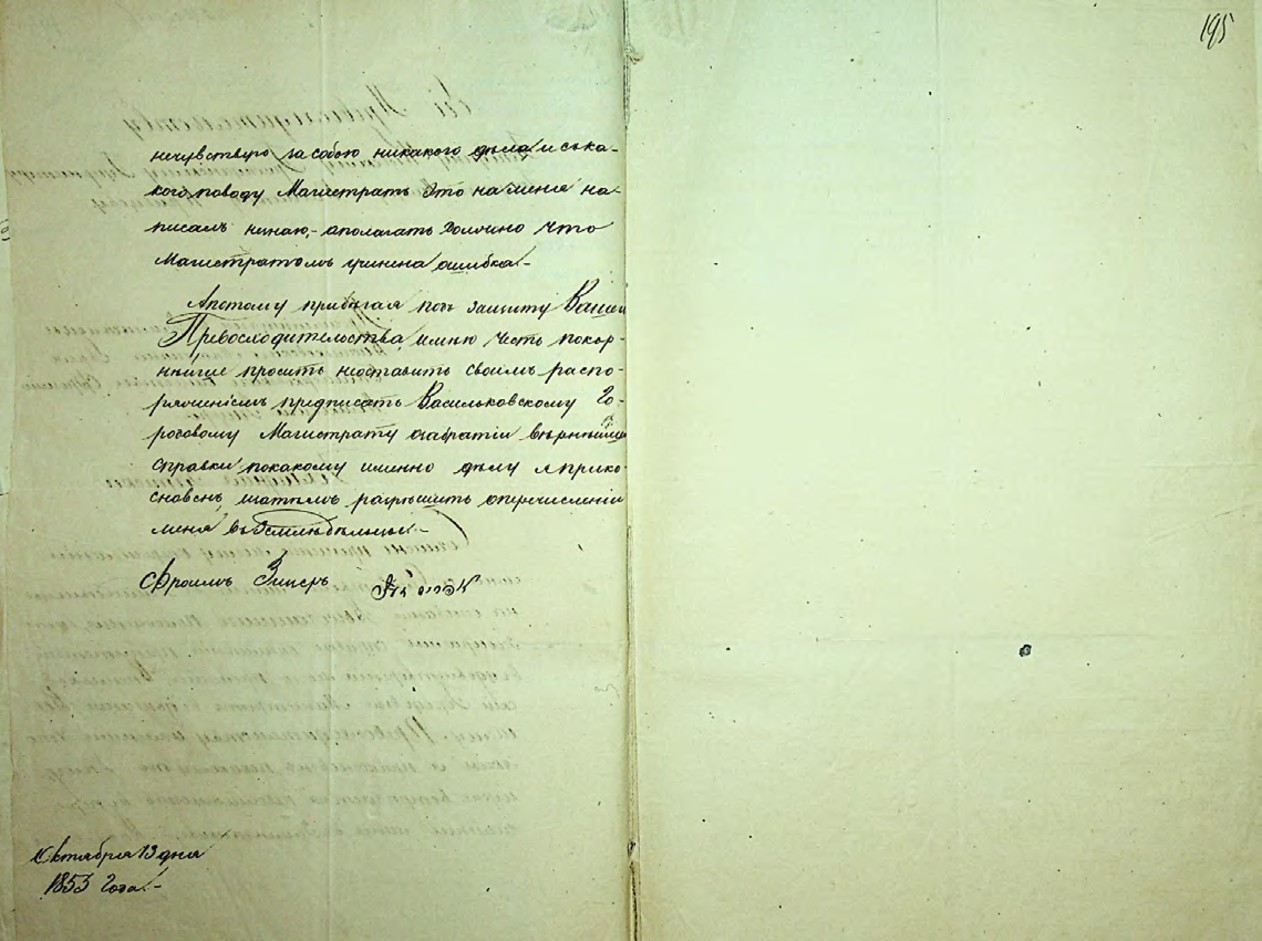 нечувствую за собою никакого дѣла и съка-
кого поводу Магистратъ это на меня на-
писалъ незнаю,- аполагать Должно что
Магистратомъ учинена ошибка.-
Апотому прибѣгая подъ защиту Вашего
Превосходительства, имѣю честь покор-
нѣйше просить неоставить своимъ распо-
ряженіемъ предписать Васильковскому Го-
родовому Магистрату забратіи вѣрнѣйшія
справки покакому именно дѣлу я прико-
сновенъ, изатѣмъ разрѣшить оперечисленіи
меня въ Земледѣльцы.-
Фроимъ
Октября 13 дня
1853 Года.-
195